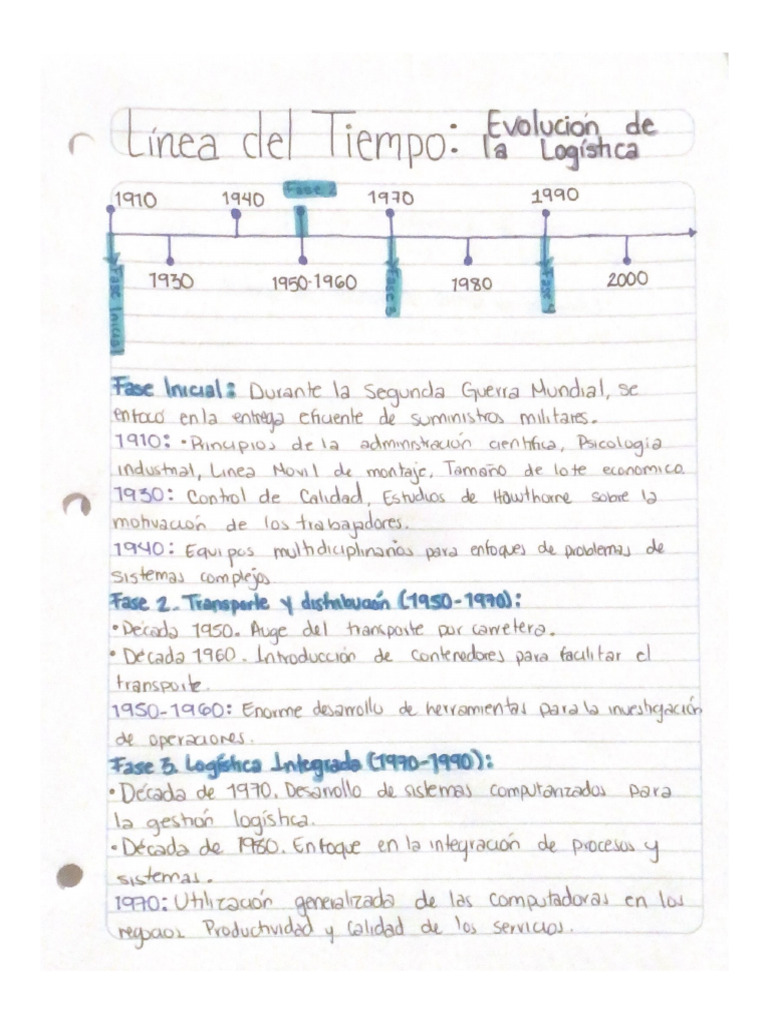 Línea del Tiempo: Evolución de
la Logística
1910 1940 Fase 2 1970 1990
1930 1950-1960 1980 2000
Fase Inicial Fase 3 Fase 4
Fase Inicial: Durante la Segunda Guerra Mundial, se
enfocó en la entrega eficiente de suministros militares.
1910: • Principios de la administración científica, Psicología
industrial, Linea Movil de montaje, Tamaño de lote economico.
1930: Control de Calidad, Estudios de Hawthorne sobre la
motivación de los trabajadores.
1940: Equipos multidiciplinarios para enfoques de problemas de
sistemas complejos
Fase 2. Transporte y distribución (1950-1970):
• Década 1950. Auge del transporte por carretera.
• Década 1960. Introducción de contenedores para facilitar el
transporte.
1950-1960: Enorme desarrollo de herramientas para la investigación
de operaciones.
Fase 3. Logística Integrada (1970-1990):
• Década de 1970. Desarrollo de sistemas computarizados para
la gestión logística.
• Década de 1980. Enfoque en la integración de procesos y
sistemas.
1970: Utilización generalizada de las computadoras en los
negocios. Productividad y Calidad de los servicios.